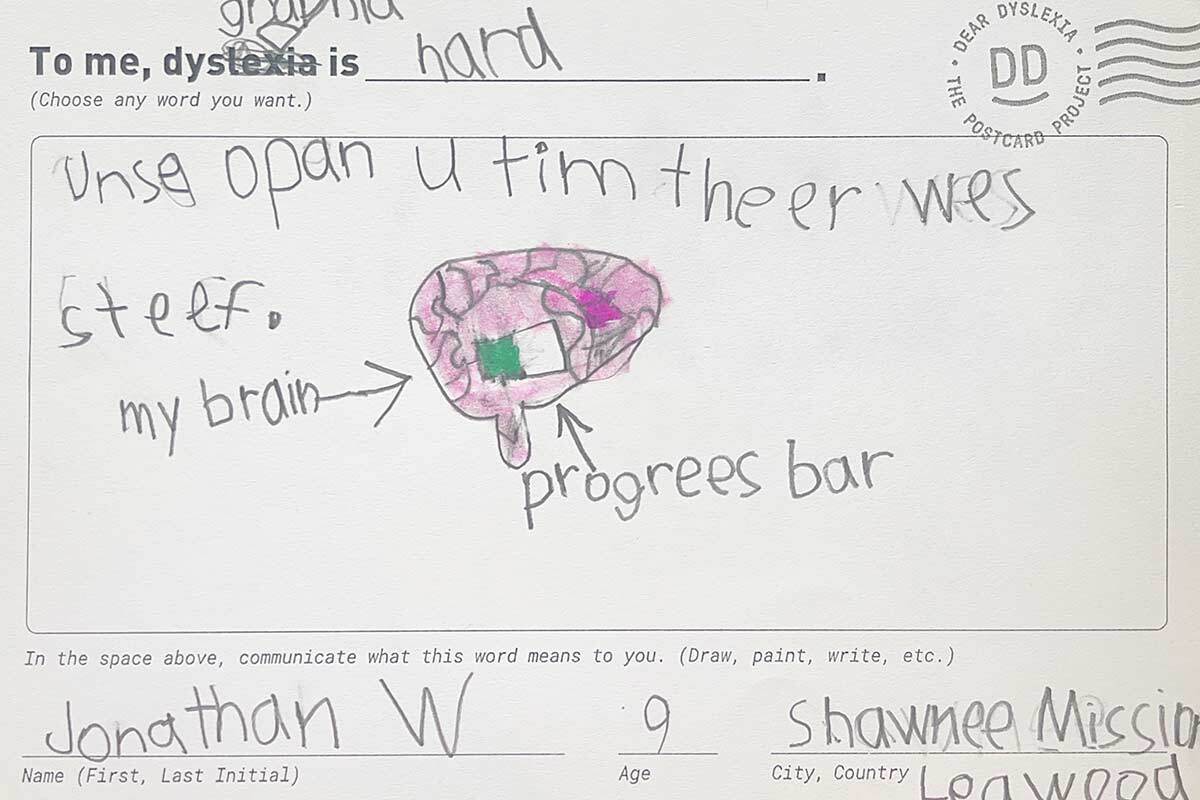 graphia
To me, dyslexia is hard.
(Choose any word you want.)
DEAR DYSLEXIA • THE POSTCARD PROJECT •
DD
Unse opan u tim theer wes
steef.
my brain
progrees bar
In the space above, communicate what this word means to you. (Draw, paint, write, etc.)
Jonathan W
9
Shawnee Mission
Name (First, Last Initial)
Age
City, Country
Leawood